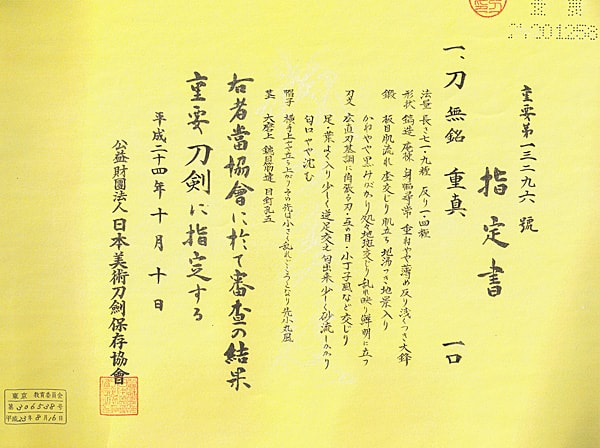 重要第一三二九六號
指定書
一、刀 無銘 重真 一口
法量 長さ七一・九糎 反り一・四糎
形状 鎬造 庵棟 身幅尋常 重ねやや薄め反り浅くつき大鋒
鍛 板目肌流れ杢交じり肌立ち 地沸つき地景入り
かねやや黒みがかり処々地斑交じり乱れ映り鮮明に立つ
刃文 広直刃基調に角張る刃・互の目・小丁子風など交じり
足・葉よく入り少しく逆足交え匂出来 少しく砂流しかかり
匂口やや沈む
帽子 横手上やや立ち上がりその先は小さく乱れごころとなり先小丸風
茎 大磨上 鑢目筋違 目釘孔五
右者當協會に於て審査の結果
重要刀剣に指定する
平成二十四年十月十日
公益財團法人日本美術刀劍保存協會
東京 教育委員会
第306538号
平成23年8月16日
重要
201258